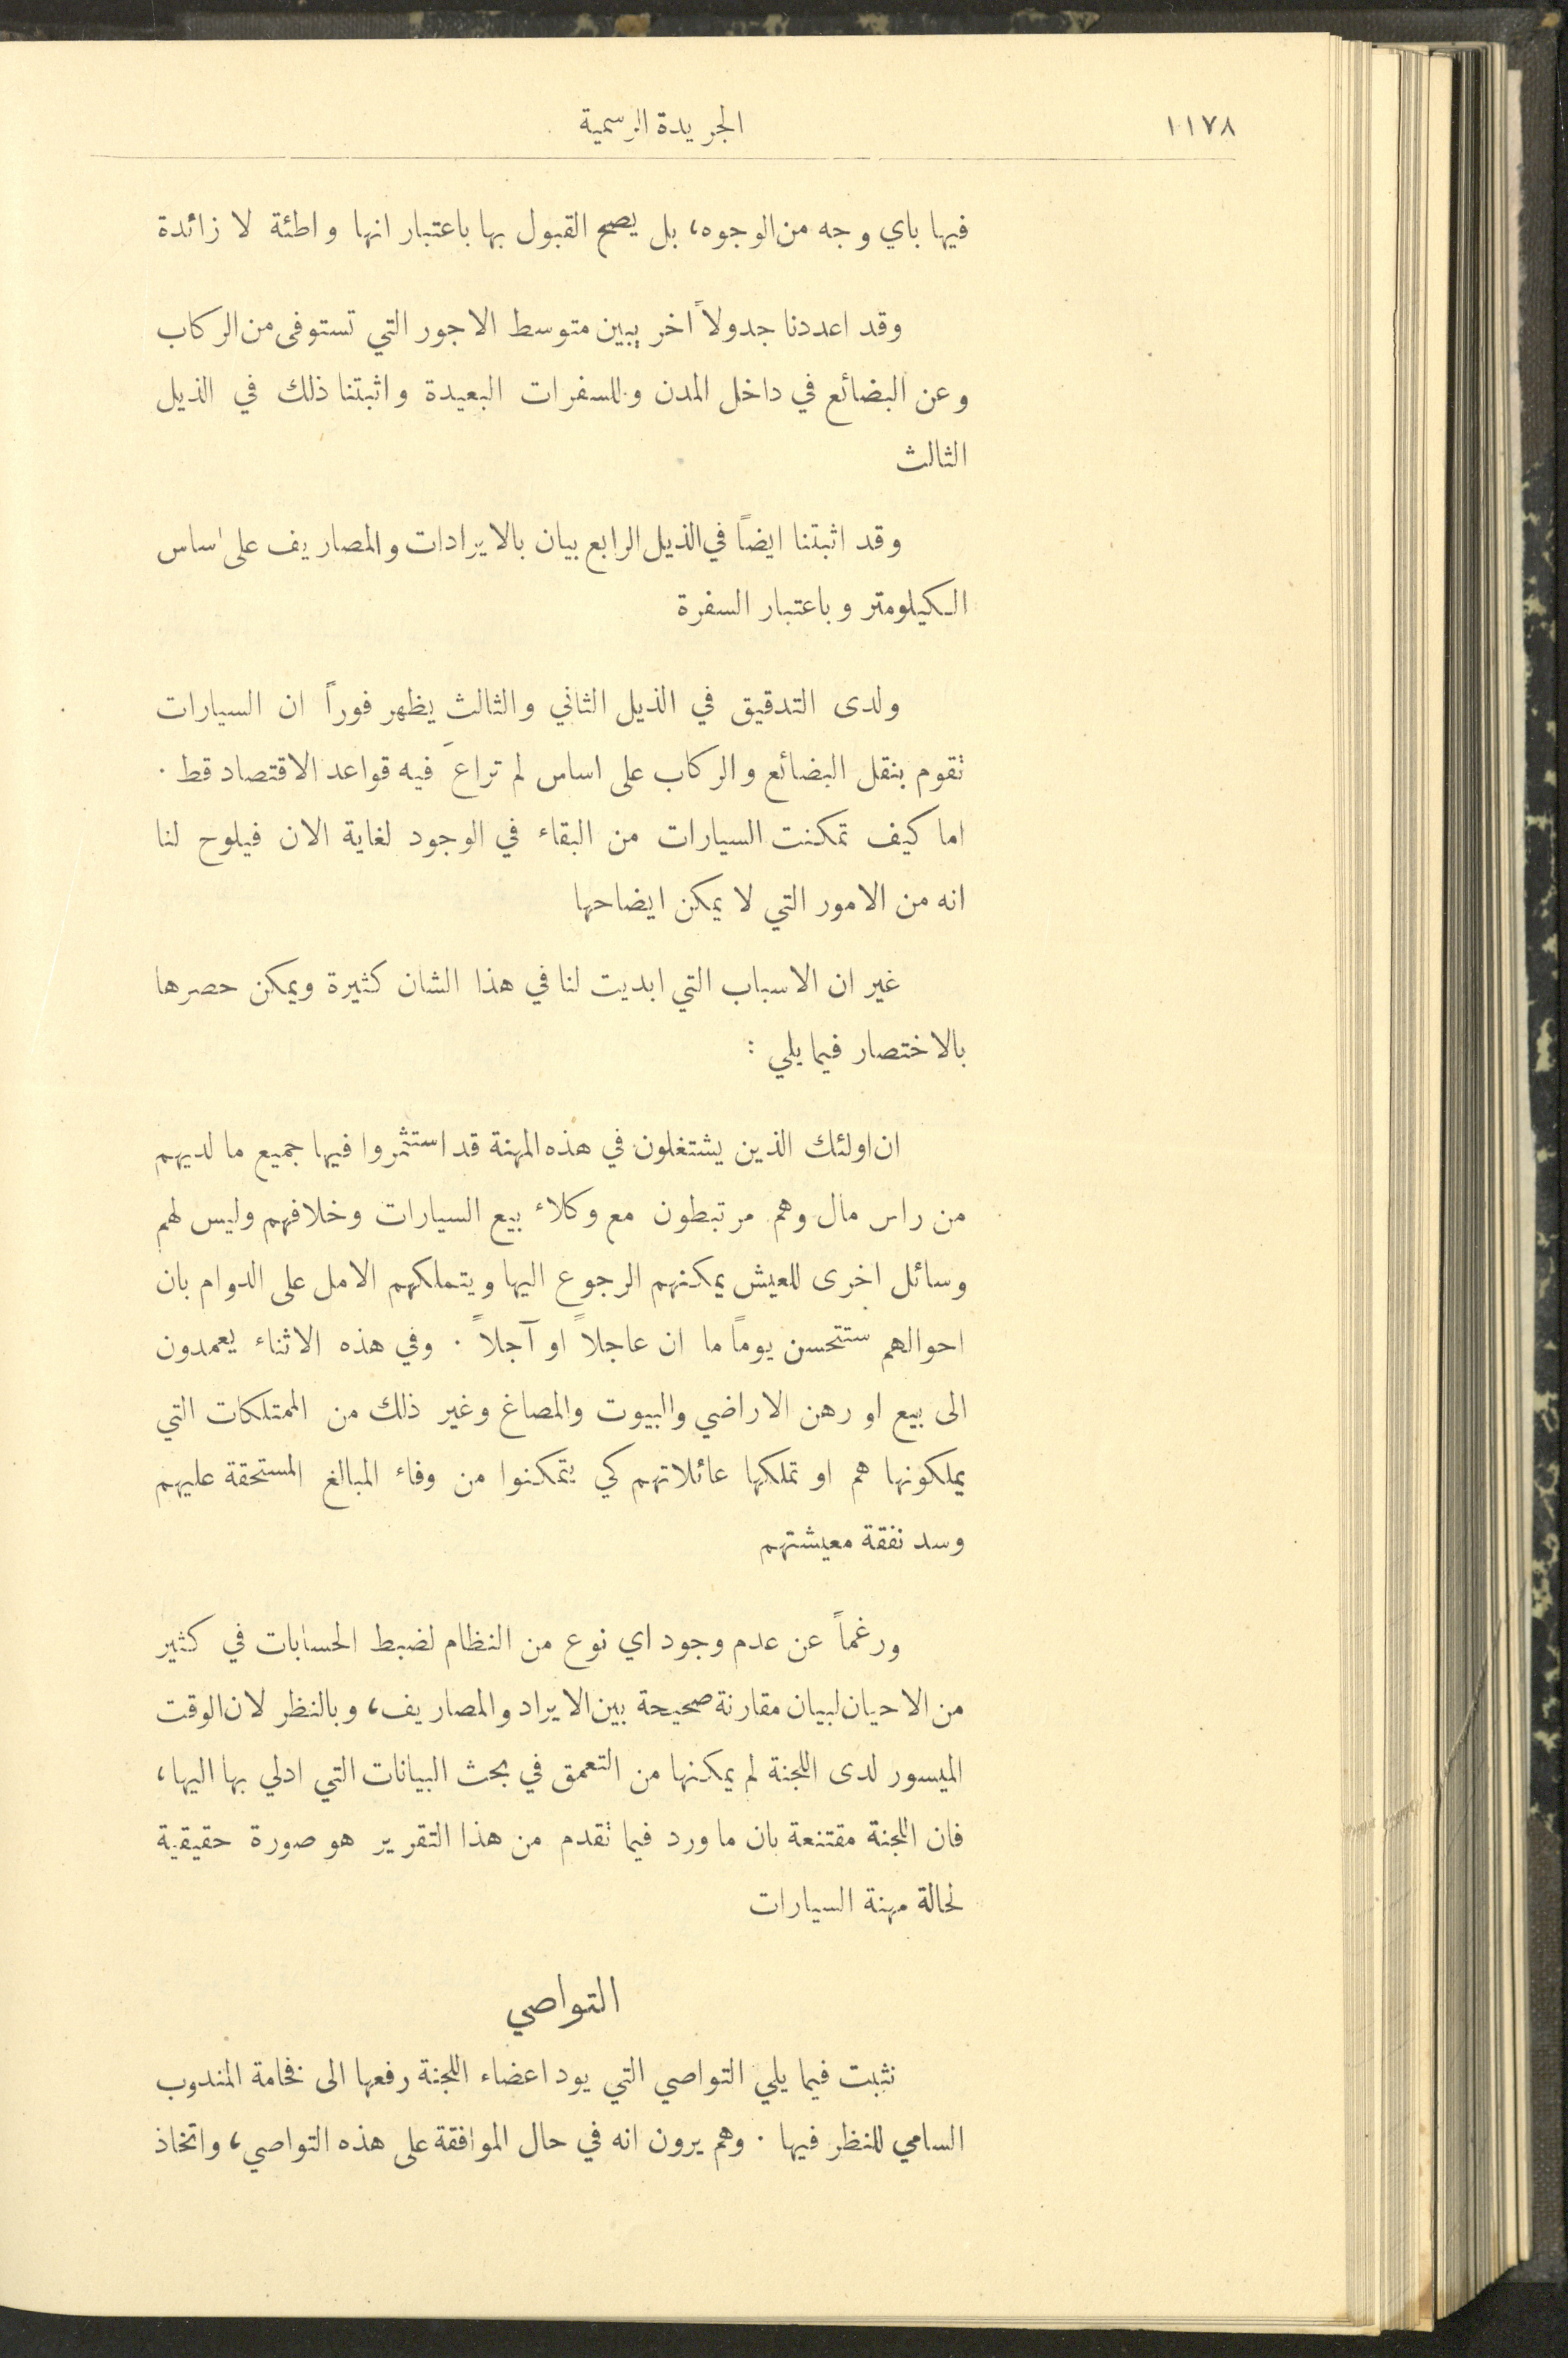 ١١٧٨ الجريدة الرسمية
فيها باي وجه من الوجوه، بل يصح القبول بها باعتبار انها واطئة لا زائدة
وقد اعددنا جدولاً اخر يبين متوسط الاجور التي تستوفى من الركاب
وعن البضائع في داخل المدن وللسفرات البعيدة واثبتنا ذلك في الذيل
الثالث
وقد اثبتنا ايضاً في الذيل الرابع بيان بالايرادات والمصاريف على اساس
الكيلومتر وباعتبار السفرة
ولدى التدقيق في الذيل الثاني والثالث يظهر فوراً ان السيارات
تقوم بنقل البضائع والركاب على اساس لم تراعَ فيه قواعد الاقتصاد قط .
اما كيف تمكنت السيارات من البقاء في الوجود لغاية الان فيلوح لنا
انه من الامور التي لا يمكن ايضاحها
غير ان الاسباب التي ابديت لنا في هذا الشان كثيرة ويمكن حصرها
بالاختصار فيما يلي :
ان اولئك الذين يشتغلون في هذه المهنة قد استثمروا فيها جميع ما لديهم
من راس مال وهم مرتبطون مع وكلاء بيع السيارات وخلافهم وليس لهم
وسائل اخرى للعيش يمكنهم الرجوع اليها ويتملكهم الامل على الدوام بان
احوالهم ستتحسن يوماً ما ان عاجلاً او آجلاً . وفي هذه الاثناء يعمدون
الى بيع او رهن الاراضي والبيوت والمصاغ وغير ذلك من الممتلكات التي
يملكونها هم او تملكها عائلاتهم كي يتمكنوا من وفاء المبالغ المستحقة عليهم
وسد نفقة معيشتهم
ورغماً عن عدم وجود اي نوع من النظام لضبط الحسابات في كثير
من الاحيان لبيان مقارنة صحيحة بين الايراد والمصاريف، وبالنظر لان الوقت
الميسور لدى اللجنة لم يمكنها من التعمق في بحث البيانات التي ادلي بها اليها،
فان اللجنة مقتنعة بان ما ورد فيما تقدم من هذا التقرير هو صورة حقيقية
لحالة مهنة السيارات
التواصي
نثبت فيما يلي التواصي التي يود اعضاء اللجنة رفعها الى فخامة المندوب
السامي للنظر فيها . وهم يرون انه في حال الموافقة على هذه التواصي، واتخاذ